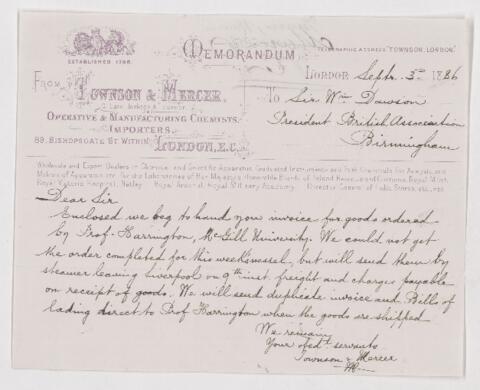 MEMORANDUM
TELEGRAPHIC ADDRESS "TOWNSON, LONDON."
ESTABLISHED 1798.
LONDON Septr. 3rd 1886
FROM
TOWNSON & MERCER,
To Sir Wm Dawson
OPERATIVE & MANUFACTURING CHEMISTS.
President British Association
IMPORTERS.
Birmingham
89, BISHOPSGATE ST WITHIN, LONDON, E.C.
Wholesale and Export Dealers in Chemical and Scientific Apparatus, Graduated Instruments and Pure Chemicals for Analysis, and
Makers of Apparatus for the Laboratories of Her Majesty's Honorable Boards of Inland Revenue and Customs, Royal Mint,
Royal Victoria Hospital, Netley Royal Arsenal, Royal Military Academy. Director General of India Stores, etc., etc.
Dear Sir
Enclosed we beg to hand you invoice for goods ordered
by Prof. Harrington, McGill University. We could not get
the order completed for this week's vessel, but will send them by
steamer leaving Liverpool on 9th inst. freight and charges payable
on receipt of goods. We will send duplicate invoice and Bills of
lading direct to Prof Harrington when the goods are shipped
We remain
Your obedt. servants
Townson & Mercer